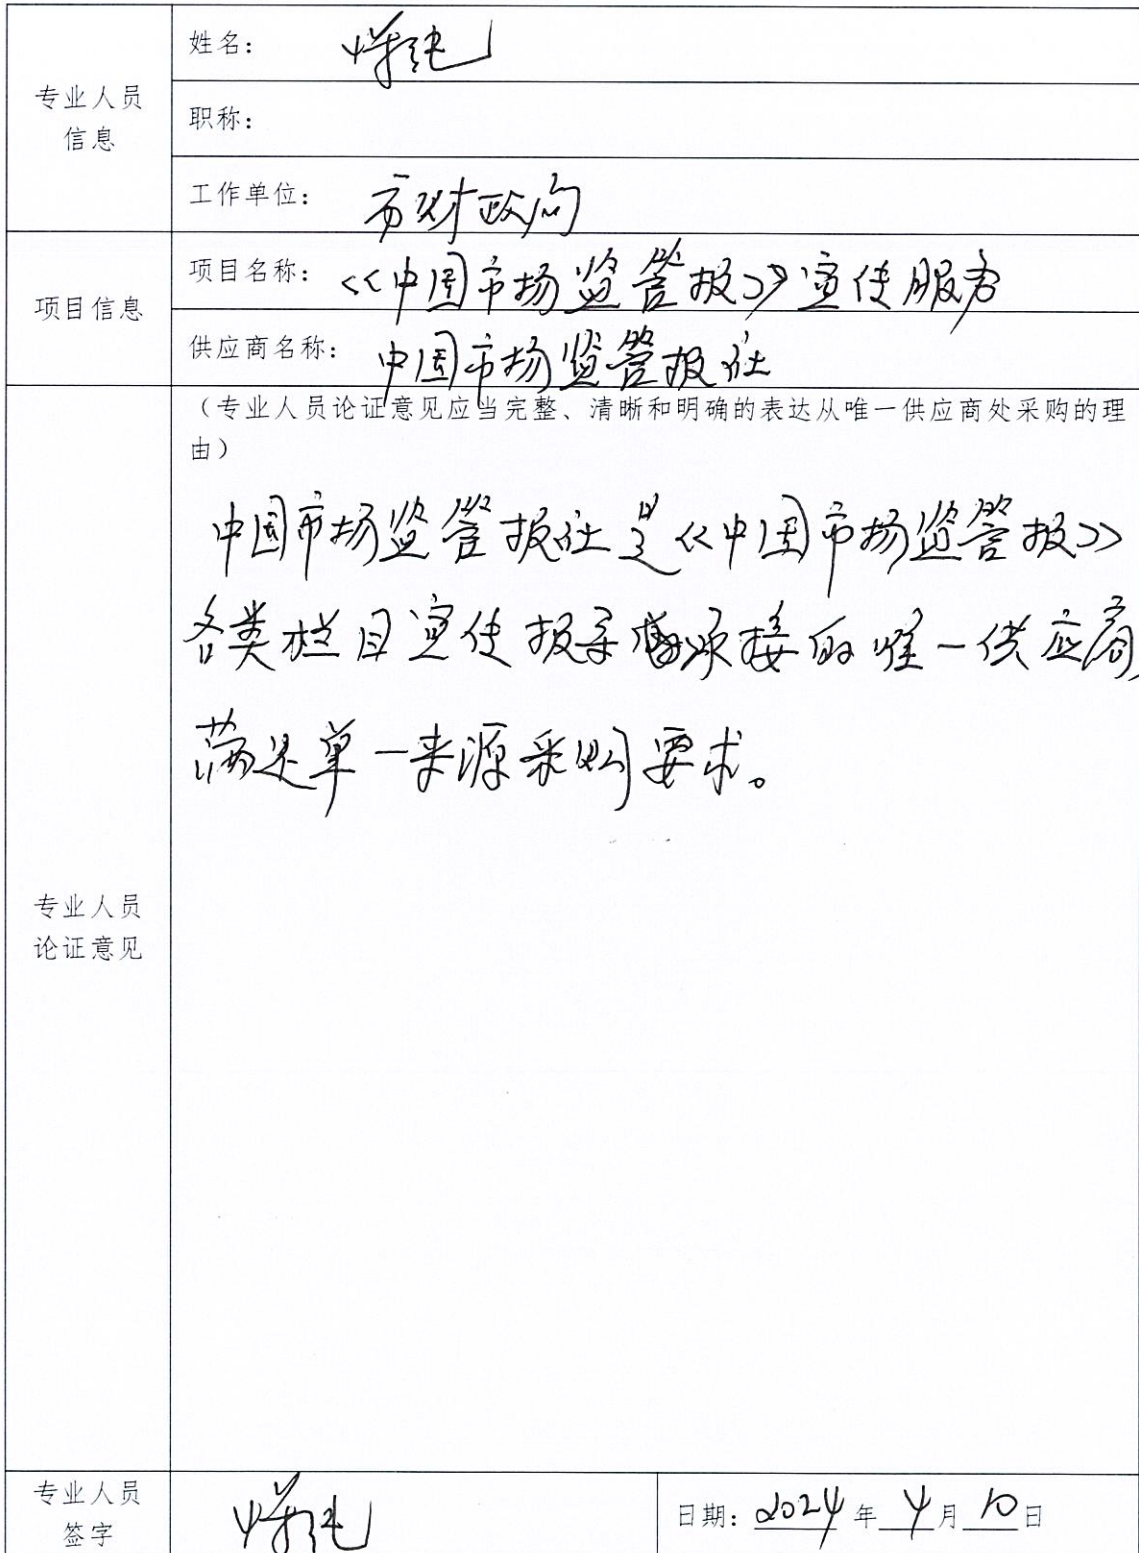 专业人员
信息
姓名：
职称：
工作单位： 市财政局
项目信息
项目名称： 《中国市场监管报》宣传服务
供应商名称： 中国市场监管报社
（专业人员论证意见应当完整、清晰和明确的表达从唯一供应商处采购的理
由）
中国市场监管报社是《中国市场监管报》
各类栏目宣传报 承接的唯一供应商
满足单一来源采购要求。
专业人员
论证意见
专业人员
签字
日期：2024年4月10日